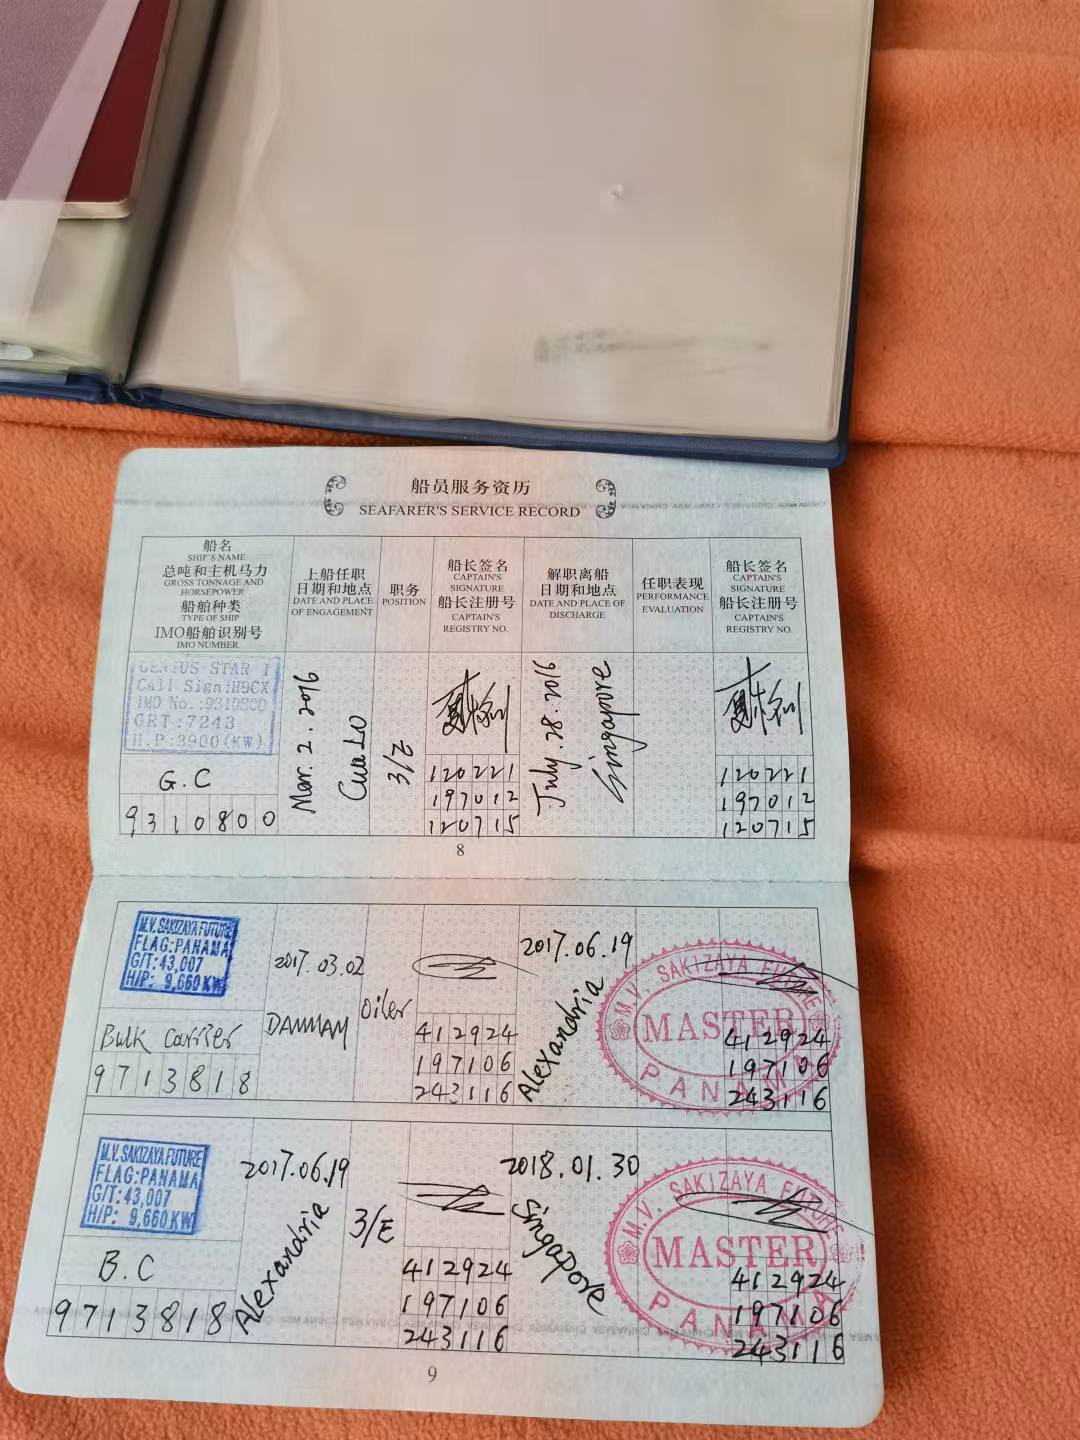 船员服务资历
SEAFARER'S SERVICE RECORD
船名
SHIP'S NAME
总吨和主机马力
GROSS TONNAGE AND
HORSEPOWER
船舶种类
TYPE OF SHIP
IMO船舶识别号
IMO NUMBER
上船任职
日期和地点
DATE AND PLACE
OF ENGAGEMENT
职务
POSITION
船长签名
CAPTAIN'S
SIGNATURE
船长注册号
CAPTAIN'S
REGISTRY NO.
解职离船
日期和地点
DATE AND PLACE OF
DISCHARGE
任职表现
PERFORMANCE
EVALUATION
船长签名
CAPTAIN'S
SIGNATURE
船长注册号
CAPTAIN'S
REGISTRY NO.
GENIUS STAR I
Call Sign:H9CX
IMO No.:9310800
GRT:7243
H.P:3900(KW)
G.C
9310800
Mar. 2. 2016
Cua Lo
3/E
120221
197012
120715
July. 28. 2016
Singapore
120221
197012
120715
8
M.V. SAKIZAYA FUTURE
FLAG:PANAMA
G/T: 43,007
H/P: 9,660KW
Bulk carrier
9713818
2017.03.02
DAMMAM
oiler
412924
197106
243116
2017.06.19
Alexandria
M.V. SAKIZAYA FUTURE
MASTER
PANAMA
412924
197106
243116
M.V. SAKIZAYA FUTURE
FLAG:PANAMA
G/T: 43,007
H/P: 9,660KW
B.C
9713818
2017.06.19
Alexandria
3/E
412924
197106
243116
2018.01.30
Singapore
M.V. SAKIZAYA FUTURE
MASTER
PANAMA
412924
197106
243116
9